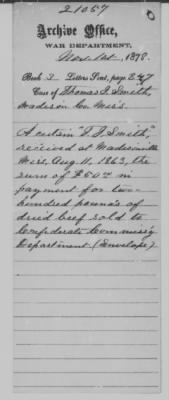 21057
Archive Office,
WAR DEPARTMENT,
Nov. 1st, 1878.
Book 3 Letters Sent, page 247
Case of Thomas J. Smith,
Madison Co. Miss.
A certain "T. J. Smith,"
received at Madisonville
Miss, Aug. 11, 1863, the
sum of $50 in
payment for two-
hundred pounds of
dried beef sold to
Confederate Commis'y
Department (Envelope)